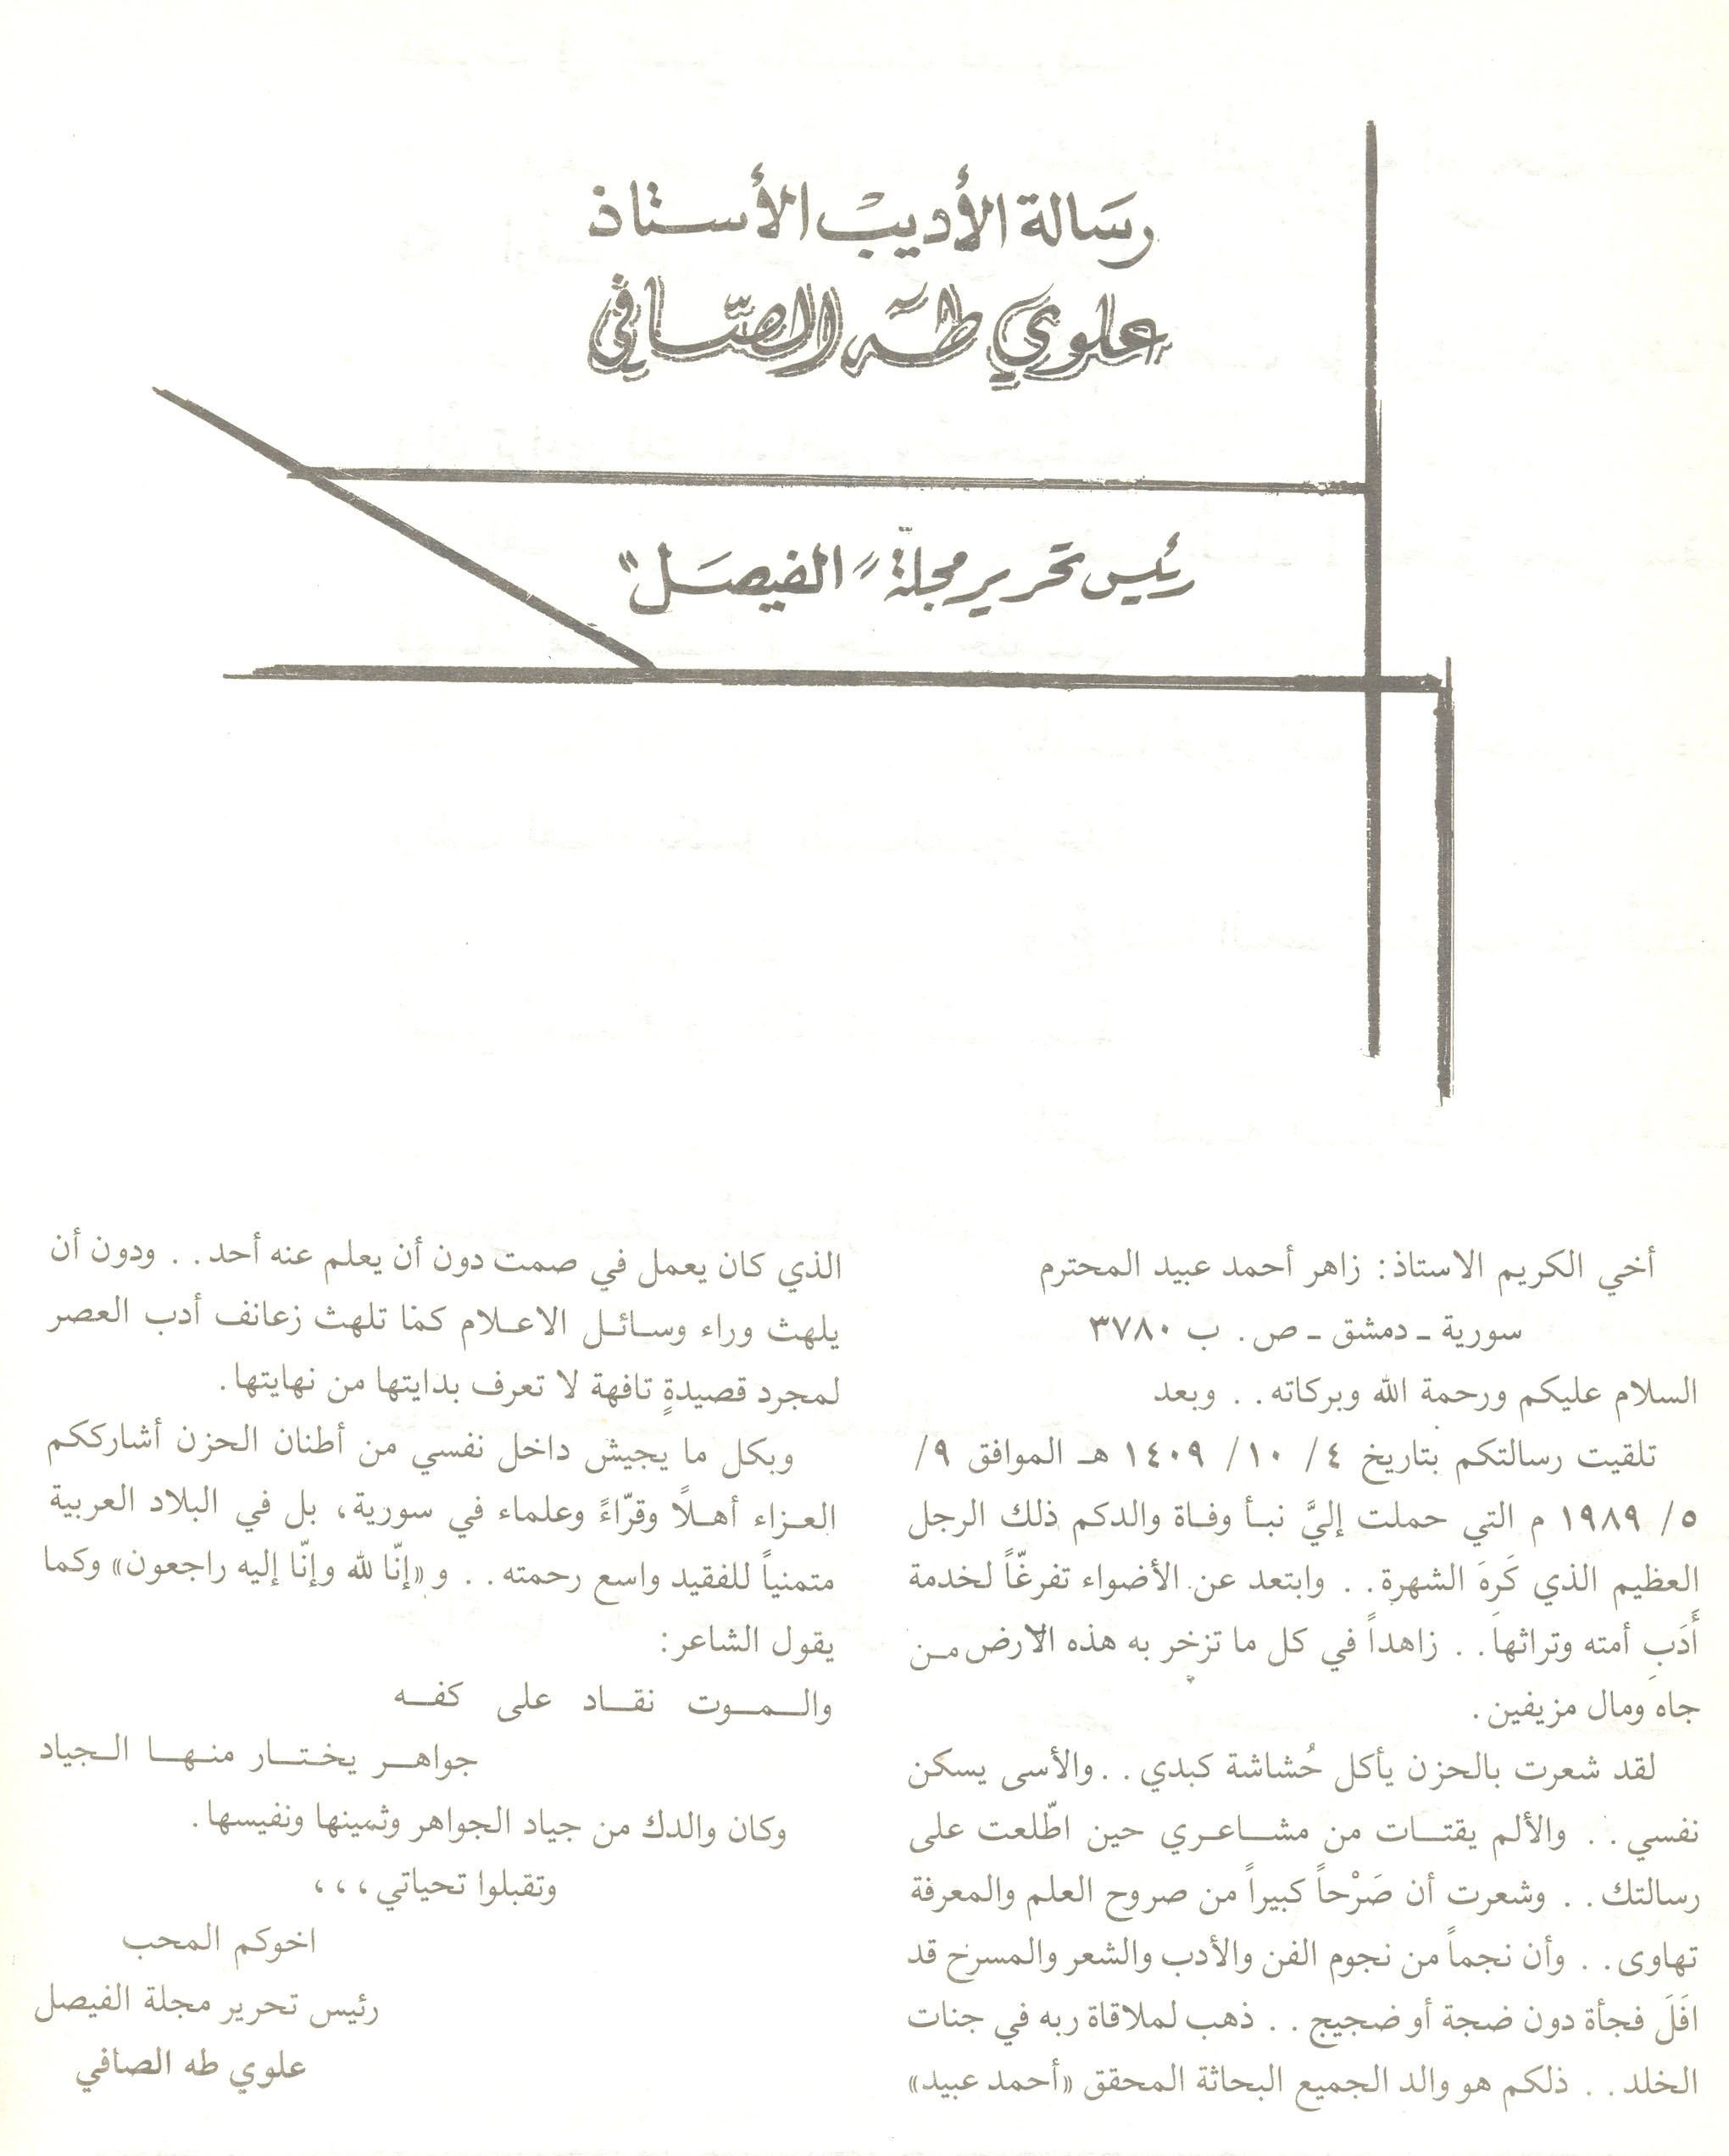 رسالة الأديب الأستاذ
علوي طه الصافي
رئيس تحرير مجلة "الفيصل"
أخي الكريم الاستاذ: زاهر أحمد عبيد المحترم
سورية ـ دمشق ـ ص. ب ٣٧٨٠
السلام عليكم ورحمة الله وبركاته.. وبعد
تلقيت رسالتكم بتاريخ ٤/ ١٠/ ١٤٠٩ هـ الموافق ٩/
٥/ ١٩٨٩ م التي حملت إليَّ نبأ وفاة والدكم ذلك الرجل
العظيم الذي كَرِهَ الشهرة.. وابتعد عن الأضواء تفرغّاً لخدمة
أَدَبِ أمته وتراثها.. زاهداً في كل ما تزخر به هذه الارض من
جاه ومال مزيفين.
لقد شعرت بالحزن يأكل حُشاشة كبدي.. والأسى يسكن
نفسي.. والألم يقتات من مشاعري حين اطّلعت على
رسالتك.. وشعرت أن صَرْحاً كبيراً من صروح العلم والمعرفة
تهاوى.. وأن نجماً من نجوم الفن والأدب والشعر والمسرح قد
افَلَ فجأة دون ضجة أو ضجيج.. ذهب لملاقاة ربه في جنات
الخلد.. ذلكم هو والد الجميع البحاثة المحقق «أحمد عبيد»
الذي كان يعمل في صمت دون أن يعلم عنه أحد.. ودون أن
يلهث وراء وسائل الاعلام كما تلهث زعانف أدب العصر
لمجرد قصيدةٍ تافهة لا تعرف بدايتها من نهايتها.
وبكل ما يجيش داخل نفسي من أطنان الحزن أشارككم
العزاء أهلاً وقرّاءً وعلماء في سورية، بل في البلاد العربية
متمنياً للفقيد واسع رحمته.. و«إنّا لله وإنّا إليه راجعون» وكما
يقول الشاعر:
والموت نقاد على كفه
جواهر يختار منها الجياد
وكان والدك من جياد الجواهر وثمينها ونفيسها.
وتقبلوا تحياتي،،،
اخوكم المحب
رئيس تحرير مجلة الفيصل
علوي طه الصافي